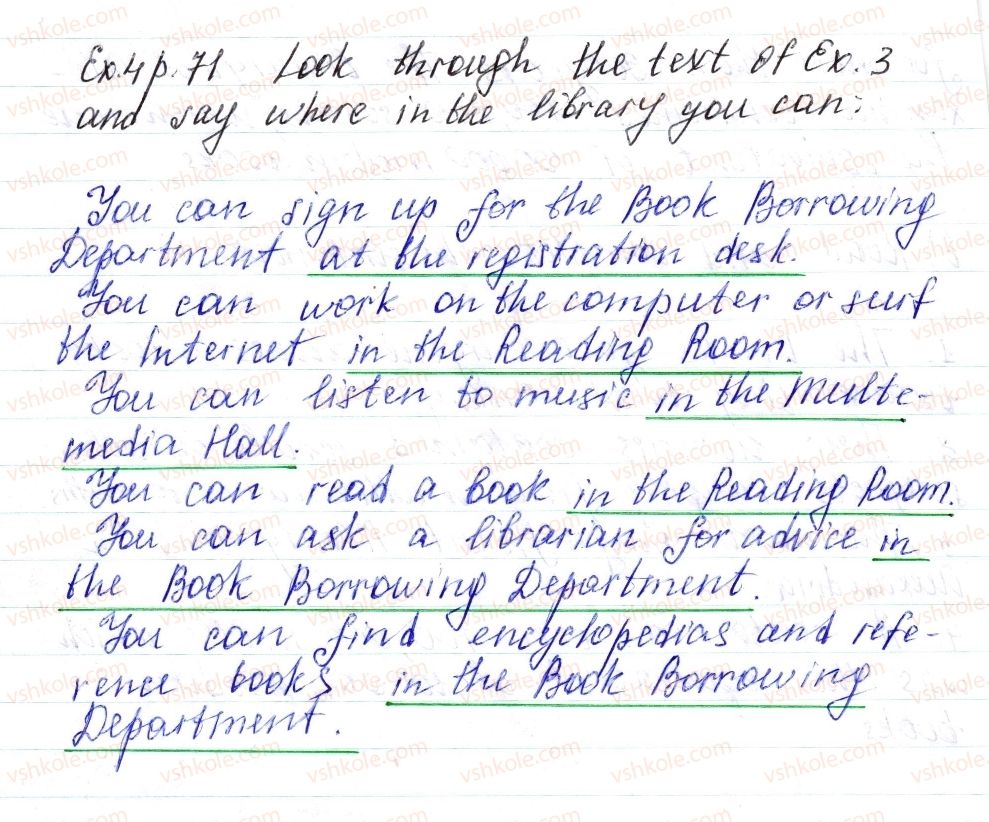 Ex.4 p.71 Look through the text of Ex.3
and say where in the library you can:
You can sign up for the Book Borrowing
Department at the registration desk.
You can work on the computer or surf
the Internet in the Reading Room.
You can listen to music in the Multi-
media Hall.
You can read a book in the Reading Room.
You can ask a librarian for advice in
the Book Borrowing Department.
You can find encyclopedias and refe-
rence books in the Book Borrowing
Department.
vshkole.com